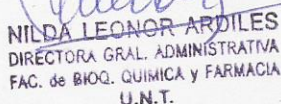 NILDA LEONOR ARDILES
DIRECTORA GRAL. ADMINISTRATIVA
FAC. de BIOQ. QUIMICA y FARMACIA
U.N.T.